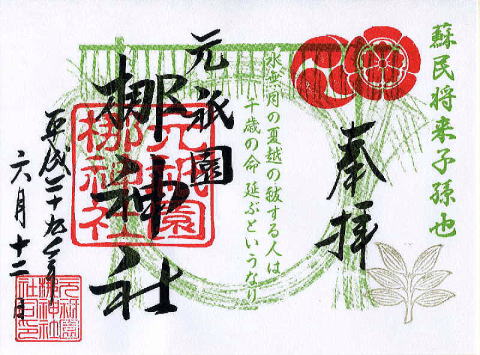 蘇民将来子孫也
奉拝
水無月の夏越の祓する人は
千歳の命 延ぶというなり
元祇園
梛神社
元祇園
梛神社
平成二十九年
六月十二日
元祇園
梛神社
社印